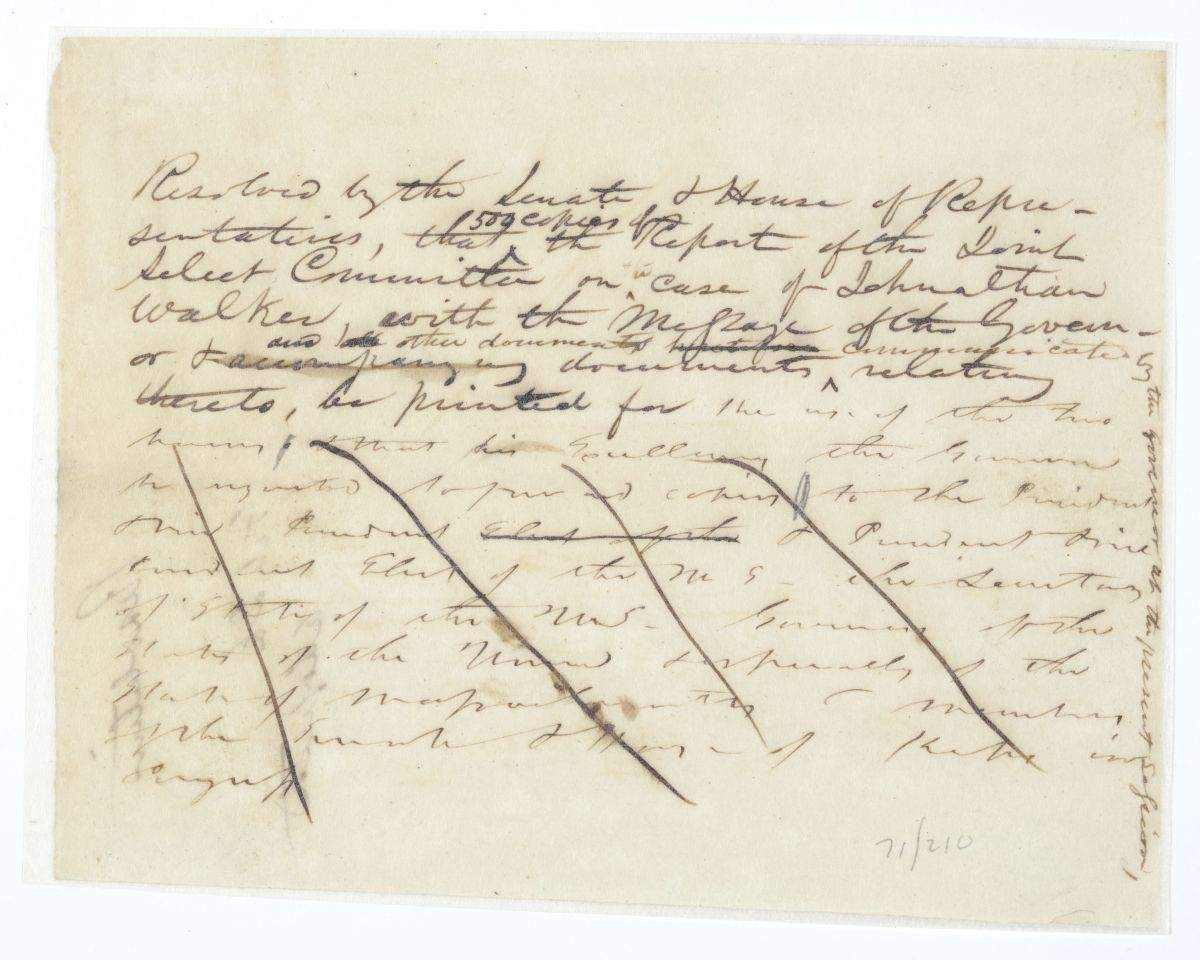 Resolved by the Senate & House of Repre-
500 copies of
sentatives, that the Report of the Joint
Select Committee on the case of Johnathan
Walker with the Message of the Govern-
and other documents communicated by the Governor at the present Session,
or & accompanying documents, relating
thereto, be printed for the use of the two
houses, & that his Excellency the Governor
be requested to forward copies to the President
& Vice President Elect of the & President & Vice
President Elect of the U S - the Secretary
of State of the U S - Governors of the
States of the Union & especially of the
State of Massachusetts & members
of the Senate & House of Reps in
Congress
71/210